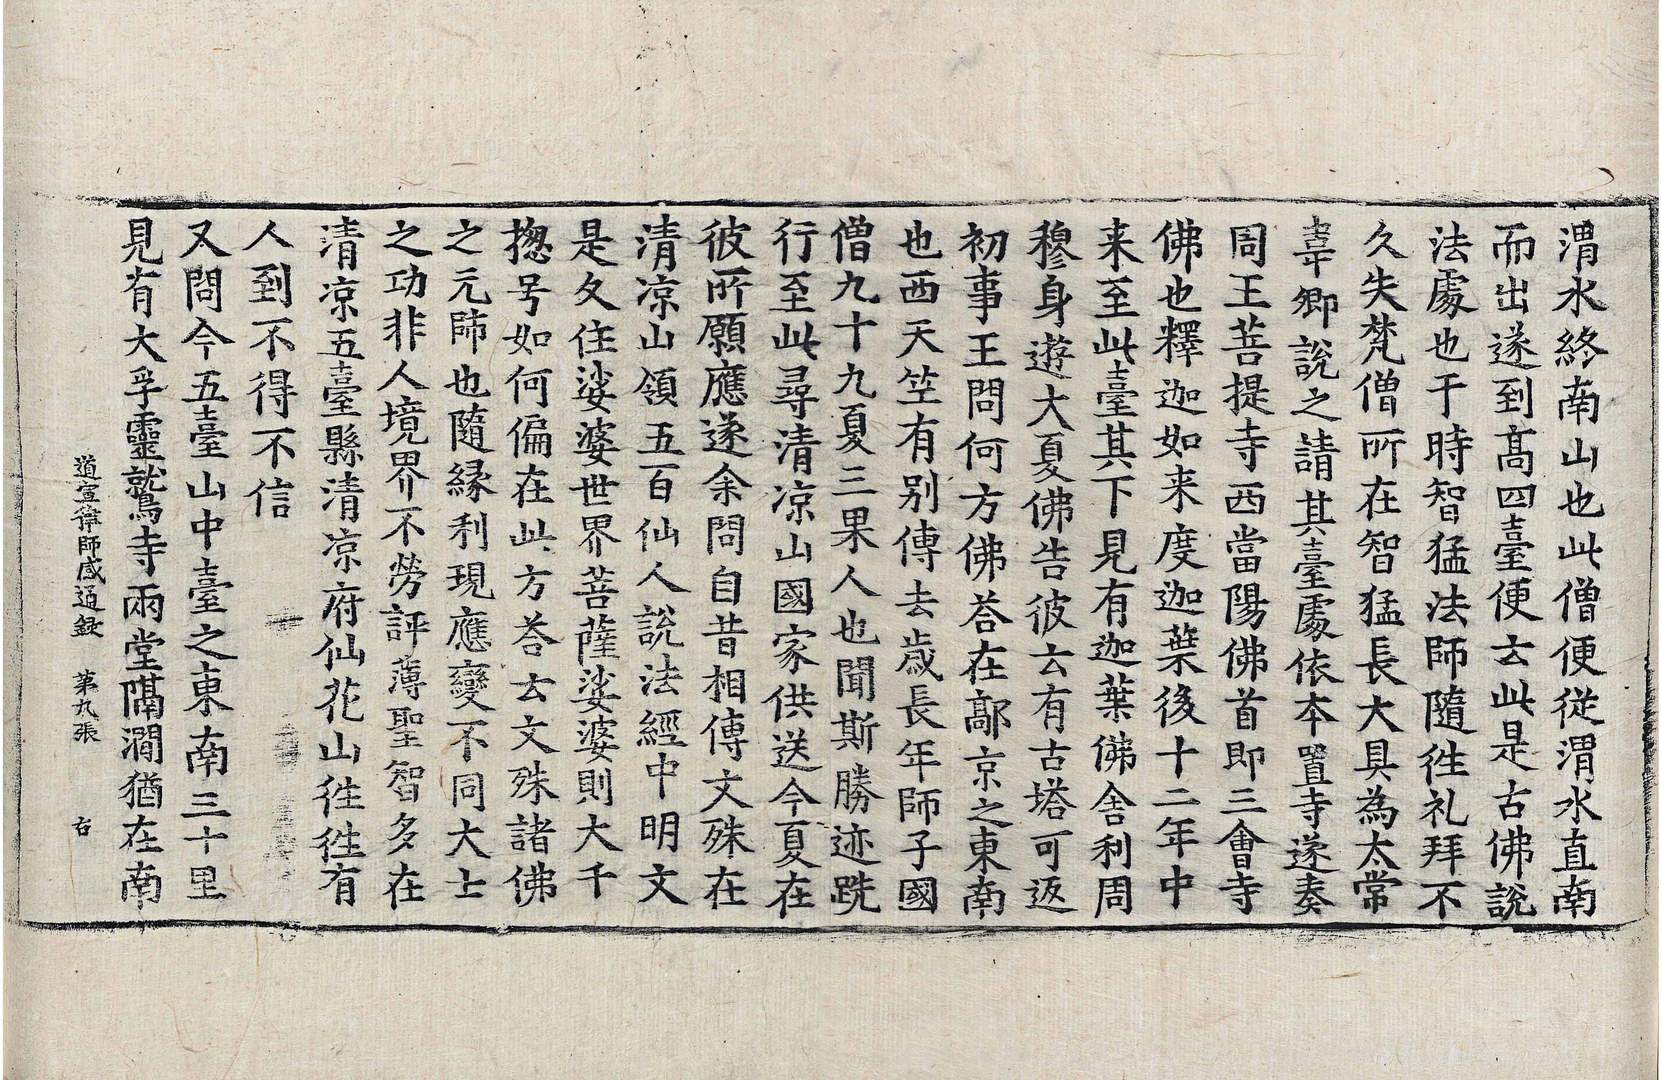 渭水終南山也此僧便從渭水直南
而出遂到髙四臺便云此是古佛說
法處也于時智猛法師隨徃礼拜不
久失梵僧所在智猛長大具為太常
韋卿說之請其臺處依本置寺遂奏
周王菩提寺西當陽佛首即三會寺
佛也釋迦如来度迦葉後十二年中
来至此臺其下見有迦葉佛舍利周
穆身遊大夏佛告彼云有古塔可返
初事王問何方佛荅在鄗京之東南
也西天竺有别傳去歳長年師子國
僧九十九夏三果人也聞斯勝迹跣
行至此尋清凉山國家供送今夏在
彼所願應遂余問自昔相傳文殊在
清凉山領五百仙人說法經中明文
是久住娑婆世界菩薩娑婆則大千
揔号如何偏在此方荅云文殊諸佛
之元師也隨縁利現應變不同大士
之功非人境界不勞評薄聖智多在
清凉五臺縣清凉府仙花山徃徃有
人到不得不信
又問今五臺山中臺之東南三十里
見有大孚靈鷲寺兩堂隔澗猶在南
道宣律師感通錄 第九張 右